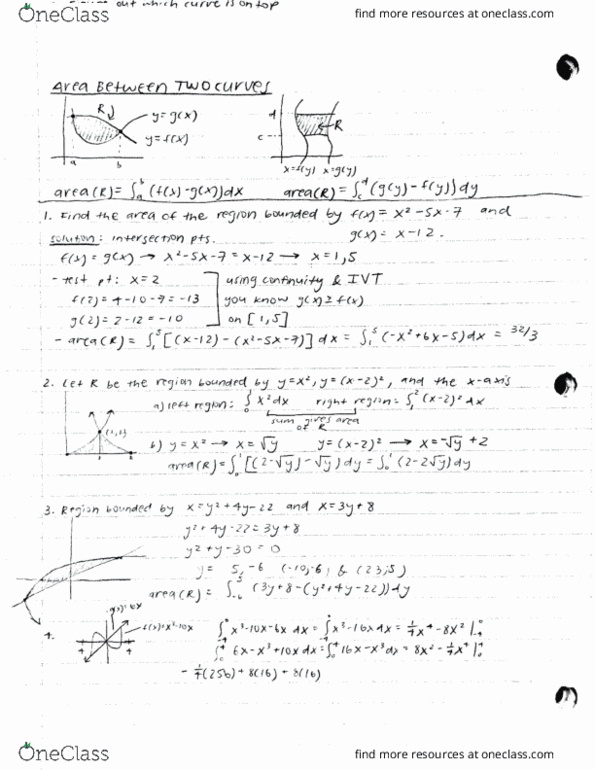 OneClass
find more resources at oneclass.com
out which curve is on top
Area Between Two Curves
R
y=g(x)
y=f(x)
a
b
d
c
R
x=f(y) x=g(y)
area(R)=∫ₐᵇ(f(x)-g(x))dx
area(R)=∫_c^d(g(y)-f(y))dy
1. Find the area of the region bounded by f(x)=x²-5x-7 and
g(x)=x-12.
solution: intersection pts.
f(x)=g(x) → x²-5x-7=x-12 → x=1,5
-test pt: x=2
f(2)=4-10-7=-13
g(2)=2-12=-10
using continuity & IVT
you know g(x)≥f(x)
on [1,5]
-area(R)=∫₁⁵[(x-12)-(x²-5x-7)]dx=∫₁⁵(-x²+6x-5)dx = 32/3
2. Let R be the region bounded by y=x², y=(x-2)², and the x-axis
(1,1)
a) left region: ∫₀¹x²dx right region: ∫₁²(x-2)²dx
sum gives area
of R
b) y=x² → x=√y y=(x-2)² → x=-√y+2
area(R)=∫₀¹[(2-√y)-√y)dy=∫₀¹(2-2√y)dy
3. Region bounded by x=y²+4y-22 and x=3y+8
y²+4y-22=3y+8
y²+y-30=0
y= 5,-6 (-10,-6) & (23,5)
area(R)=∫₋₆⁵(3y+8-(y²+4y-22))dy
4.
g(x)=6x
f(x)=x³-10x
∫₋₄⁰x³-10x-6x dx=∫₋₄⁰x³-16x dx=¼x⁴-8x²|₋₄⁰
∫₀⁴6x-x³+10x dx=∫₀⁴16x-x³dx=8x²-¼x⁴|₀⁴
-¼(256)+8(16)+8(16)
OneClass
find more resources at oneclass.com